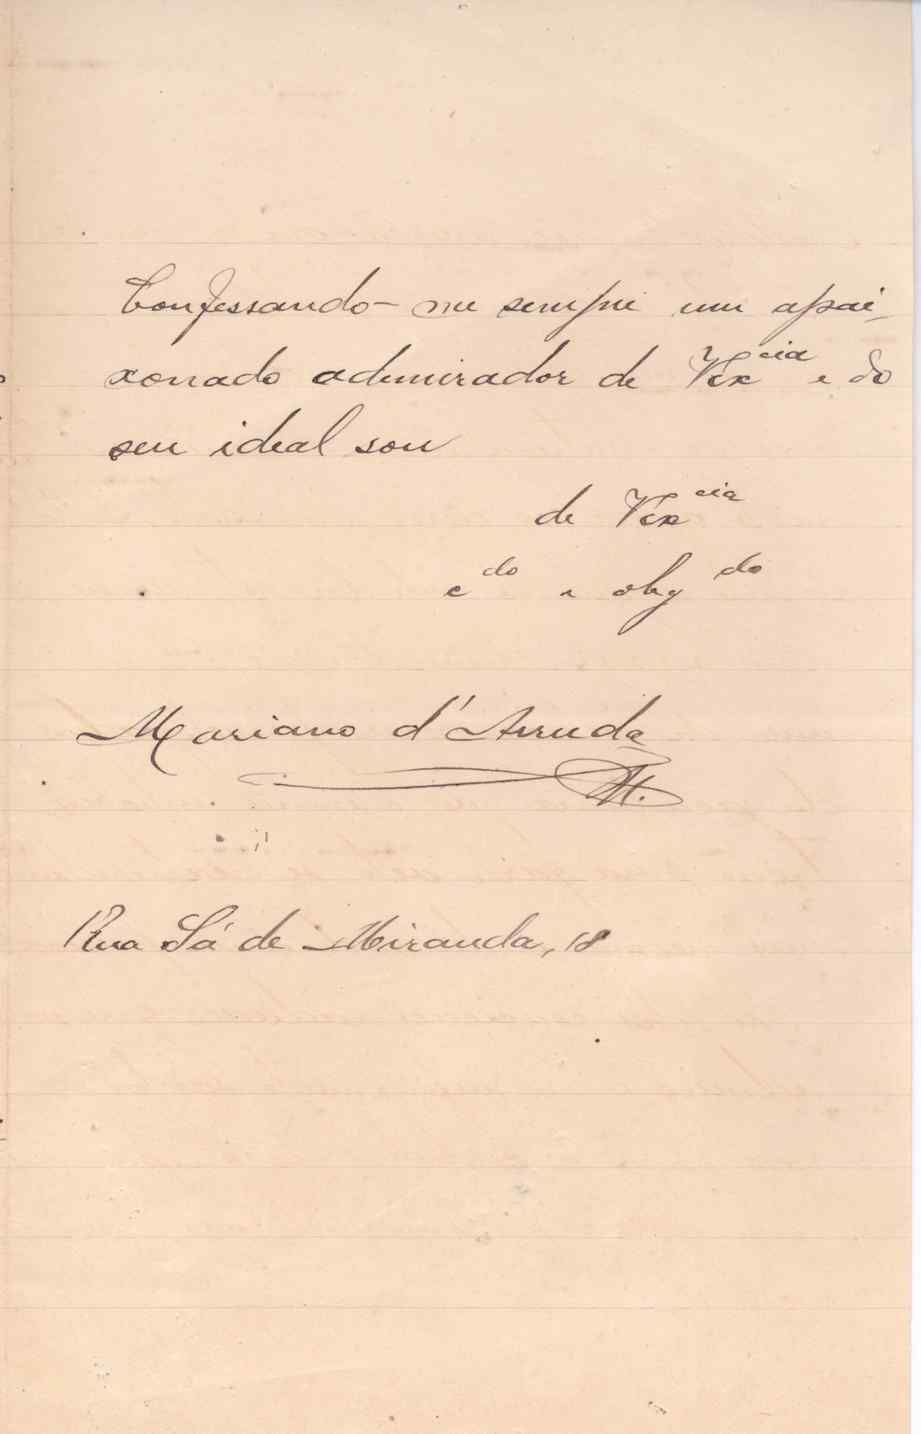 Confessando-me sempre um apai-
xonado admirador de V Ex^cia e do
seu ideal sou
de V Ex^cia
c^do e obg^do
Mariano d'Arruda
Rua Sá de Miranda, 18